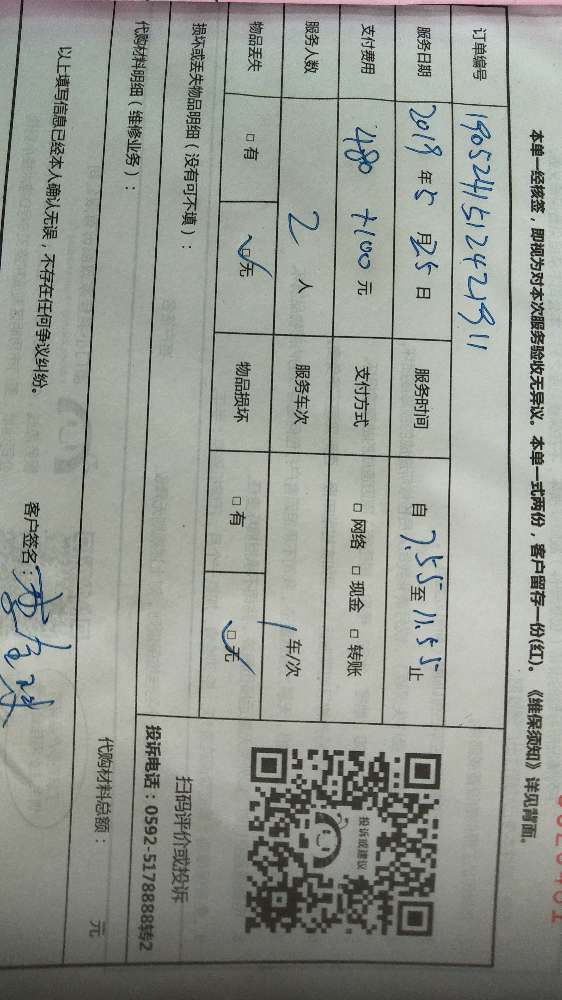 本单一经核签，即视为对本次服务验收无异议。本单一式两份，客户留存一份(红)。《维保须知》详见背面。
订单编号 1905241512421911
服务日期 2019年5月25日 服务时间 自7.55至11.55止
支付费用 480+100元 支付方式 □网络 □现金 □转账
服务人数 2人 服务车次 1车/次
物品丢失 □有 ☑无 物品损坏 □有 ☑无
投诉或建议
扫码评价或投诉
投诉电话：0592-5178888转2
损坏或丢失物品明细（没有可不填）：
代购材料明细（维修业务）： 代购材料总额： 元
以上填写信息已经本人确认无误，不存在任何争议纠纷。 客户签名：